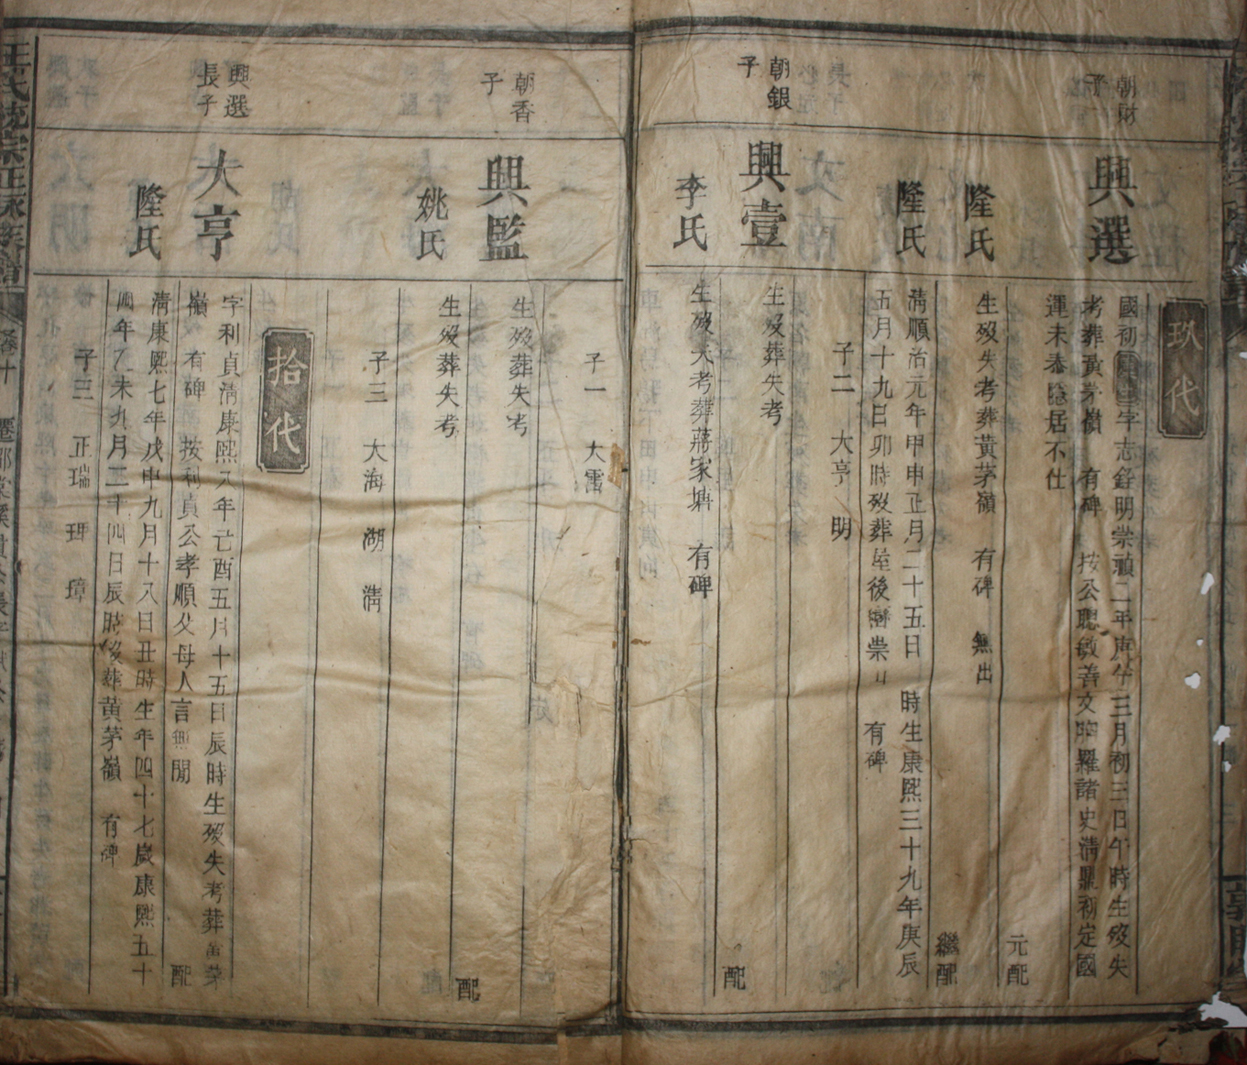 玖代
朝財子
興選
國初 字志銓明崇禎二年庚午三月初三日午時生歿失
考葬黃茅嶺 有碑 按公聰敏善文胸羅諸史清鼎初定國
運未泰隱居不仕
元配
隆氏
生歿失考葬黃茅嶺 有碑 無出
繼配
隆氏
清順治元年甲申正月二十五日 時生康熙三十九年庚辰
五月十九日卯時歿葬屋後 崇山 有碑
子二 大亨 明
朝銀子
興壹
生歿葬失考
配
李氏
生歿失考葬蔣家塘 有碑
子一 大雷
朝香子
興監
生歿葬失考
配
姚氏
生歿葬失考
子三 大海 湖 清
拾代
興選長子
大亨
字利貞清康熙八年己酉五月十五日辰時生歿失考葬黃茅
嶺 有碑 按利貞公孝順父母人言無間
配
隆氏
清康熙七年戊申九月十八日丑時生年四十七歲康熙五十
四年乙未九月二十四日辰時歿葬黃茅嶺 有碑
子三 正瑞 珥 璋
王氏
卷十